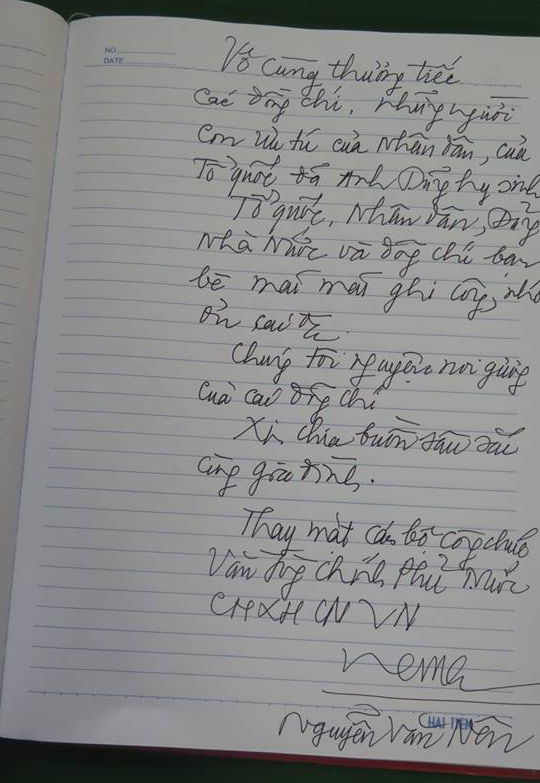 NO
DATE
Vô cùng thương tiếc
các đồng chí, những người
con ưu tú của Nhân dân, của
Tổ quốc đã Anh Dũng hy sinh
Tổ quốc, Nhân dân, Đảng
Nhà Nước và đồng chí bạn
bè mãi mãi ghi công, nhớ
ơn các đ/c.
Chúng tôi nguyện noi gương
của các đồng chí
Xin chia buồn sâu sắc
cùng gia đình.
Thay mặt cán bộ công chức
Văn phòng Chính Phủ Nước
CHXHCN VN
HẢI TIẾN
Nguyễn Văn Nên